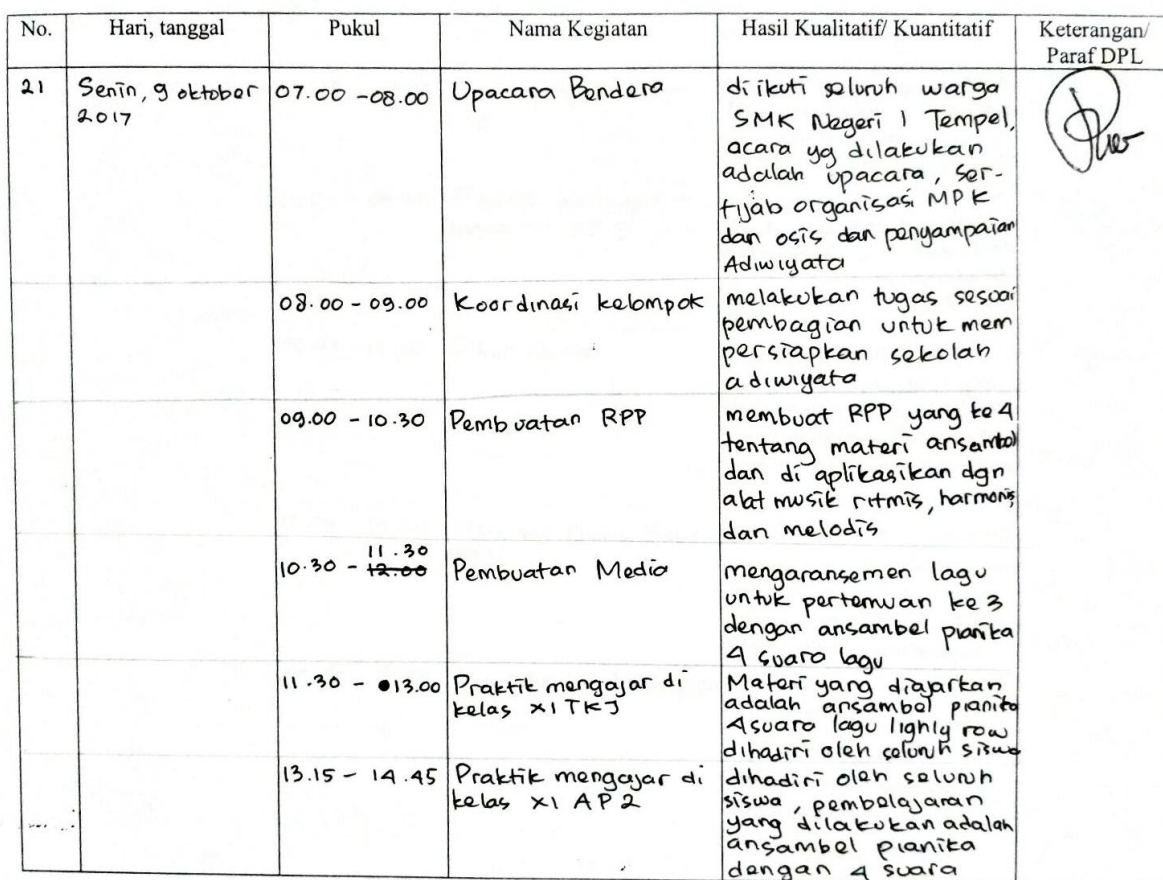 No. Hari, tanggal Pukul Nama Kegiatan Hasil Kualitatif/ Kuantitatif Keterangan/
Paraf DPL
21 Senin, 9 oktober 07.00 - 08.00 Upacara Bendera di ikuti seluruh warga
2017 SMK Negeri 1 Tempel,
acara yg dilakukan
adalah upacara, ser-
tijab organisasi MPK
dan osis dan penyampaian
Adiwiyata
08.00 - 09.00 Koordinasi kelompok melakukan tugas sesuai
pembagian untuk mem
persiapkan sekolah
adiwiyata
09.00 - 10.30 Pembuatan RPP membuat RPP yang ke 4
tentang materi ansambel
dan di aplikasikan dgn
alat musik ritmis, harmonis,
dan melodis
11.30
10.30 - 12.00 Pembuatan Media mengaransemen lagu
untuk pertemuan ke 3
dengan ansambel pianika
4 suara lagu
11.30 - 13.00 Praktik mengajar di Materi yang diajarkan
kelas XI TKJ adalah ansambel pianika
4 suara lagu lighly row
dihadiri oleh seluruh siswa
13.15 - 14.45 Praktik mengajar di dihadiri oleh seluruh
kelas XI AP 2 siswa, pembelajaran
yang dilakukan adalah
ansambel pianika
dengan 4 suara